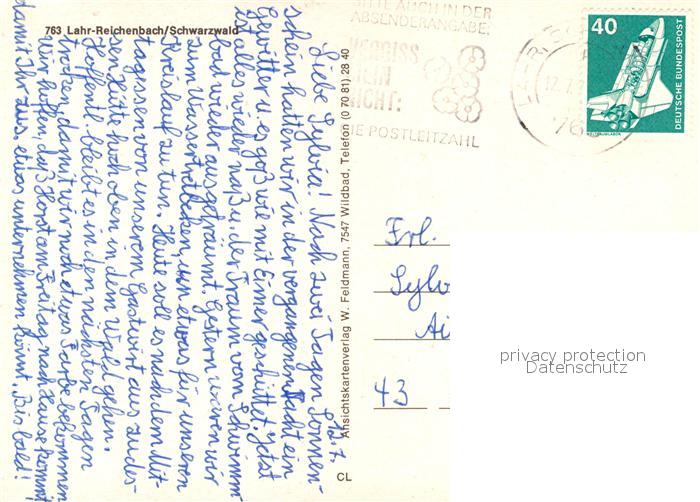 763 Lahr-Reichenbach/Schwarzwald
12. 7.
Liebe Sylvia! Nach zwei Tagen Sonnen-
schein hatten wir in der vergangenen Nacht ein
Gewitter u. es goß wie mit Eimer geschüttet. Jetzt
ist alles wieder naß u. der Traum vom Schwimm-
bad wieder ausgeträumt. Gestern waren wir
zum Wassertretbecken, um etwas für unseren
Kreislauf zu tun. Heute soll es nach dem Mit-
tagessen von unserem Gastwirt aus zu des-
sen Hütte hoch oben in dem Wald gehen.
Hoffentl. bleibt es in den nächsten Tagen
trocken, damit wir noch etwas Farbe bekommen.
Wir hoffen, daß Horst am Freitag nach Hause kommt,
damit Ihr aus, etwas unternehmen könnt. Bis bald!
Ansichtskartenverlag W. Feldmann, 7547 Wildbad, Telefon (0 70 81) 28 40
CL
BITTE AUCH IN DER
ABSENDERANGABE:
VERGISS
MEIN
NICHT:
DIE POSTLEITZAHL
LAHR, SC
76
40
DEUTSCHE BUNDESPOST
WELTRAUMLABOR
Frl.
Sylv
Ai
43
privacy protection
Datenschutz